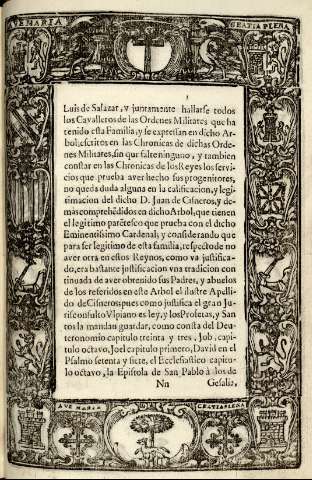 AVE MARIA
GRATIA PLENA
Luis de Salazar, y juntamente hallarse todos
los Cavalleros de las Ordenes Militares que ha
tenido esta Familia, y se expressan en dicho Ar-
bol, escritos en las Chronicas de dichas Orde-
nes Militares, sin que falte ninguno, y tambien
constar en las Chronicas de los Reyes los servi-
cios que prueba aver hecho sus progenitores,
no queda duda alguna en la calificacion, y legi-
timacion del dicho D. Juan de Cisneros, y de-
màs comprehẽdidos en dicho Arbol, que tienen
el legitimo parẽtesco que prueba con el dicho
Eminentissimo Cardenal; y considerando que
para ser legitimo de esta familia, respecto de no
aver otra en estos Reynos, como va justifica-
do, era bastante justificacion vna tradicion con
tinuada de aver obtenido sus Padres, y abuelos
de los referidos en este Arbol el ilustre Apelli-
do de Cisneros; pues como justifica el gran Ju-
risconsulto Vlpiano es ley, y los Profetas, y San
tos la mandan guardar, como consta del Deu-
teronomio capitulo treinta y tres, Job, capi-
tulo octavo, Joel capitulo primero, David en el
Psalmo setenta y siete, el Ecclesiastico capitu-
lo octavo, la Epistola de San Pablo à los de
Nn
Gesalia,
AVE MARIA
GRATIA PLENA